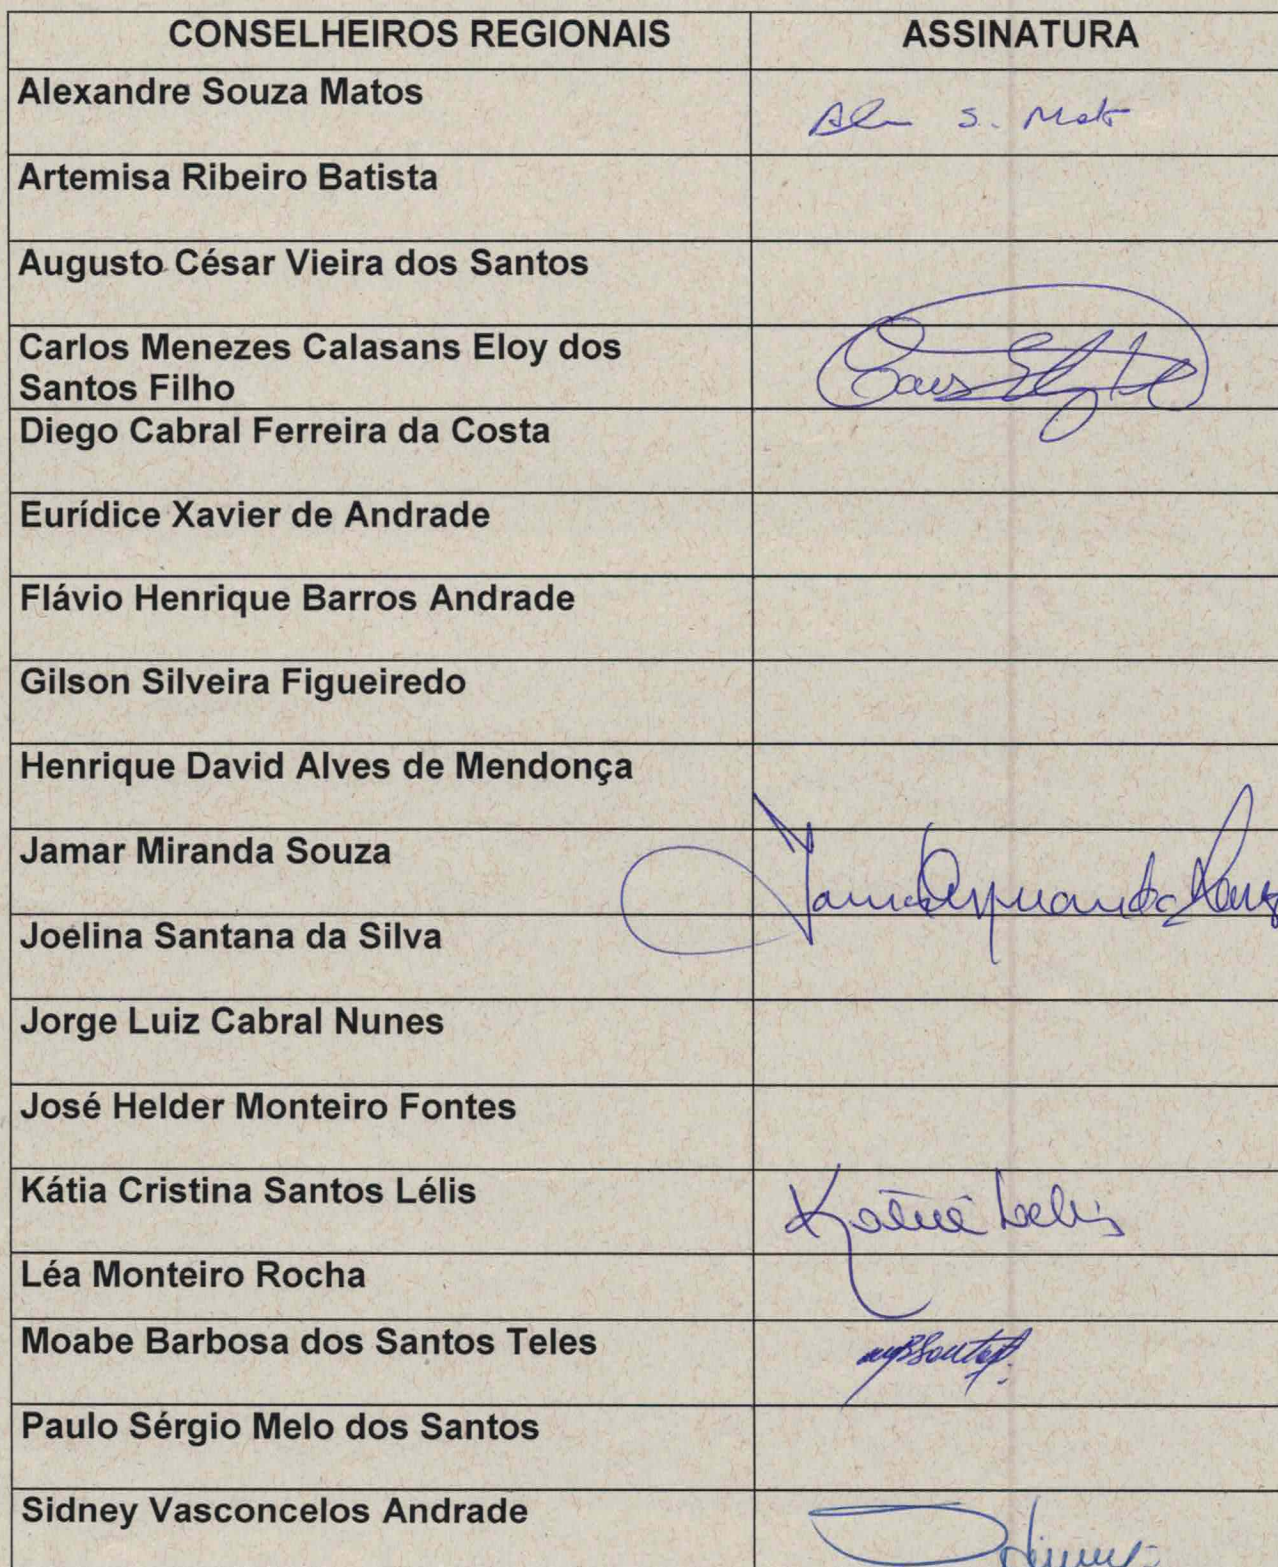 CONSELHEIROS REGIONAIS ASSINATURA
Alexandre Souza Matos
S. Mato
Artemisa Ribeiro Batista
Augusto César Vieira dos Santos
Carlos Menezes Calasans Eloy dos
Santos Filho
Diego Cabral Ferreira da Costa
Eurídice Xavier de Andrade
Flávio Henrique Barros Andrade
Gilson Silveira Figueiredo
Henrique David Alves de Mendonça
Jamar Miranda Souza
Joelina Santana da Silva
Jorge Luiz Cabral Nunes
José Helder Monteiro Fontes
Kátia Cristina Santos Lélis
Kátia Lelis
Léa Monteiro Rocha
Moabe Barbosa dos Santos Teles
Paulo Sérgio Melo dos Santos
Sidney Vasconcelos Andrade